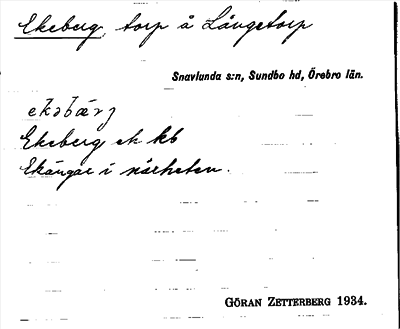 Ekeberg, torp å Långetorp
Snavlunda s:n, Sundbo hd, Örebro län.
ekəbærj
Ekeberg ek kb
Ekängar i närheten.
GÖRAN ZETTERBERG 1934.